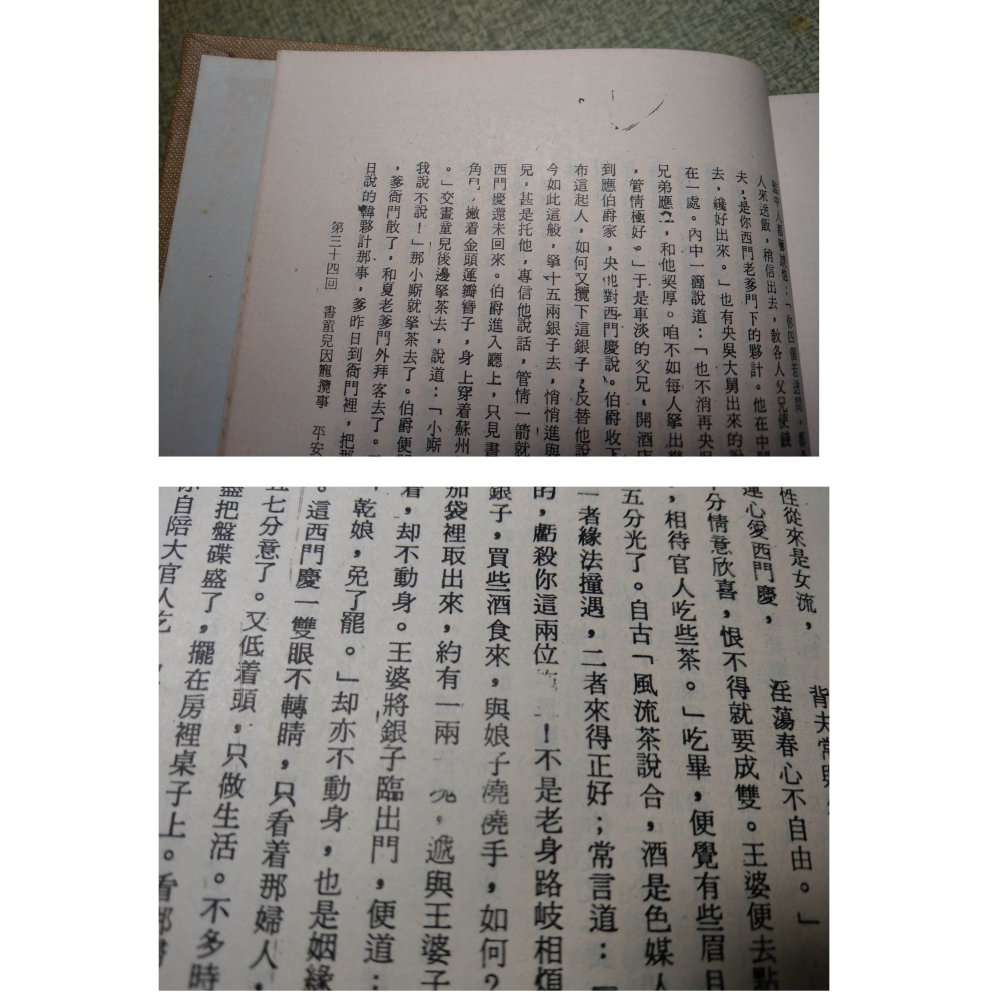 人來送飯，稍信出去，教各人父兄使錢
夫，是你西門老爹門下的夥計。他在中間
去，纔好出來。」也有央吳大舅出來的說
在一處。內中一箇說道：「也不消再央吳
兄弟應，和他契厚。咱不如每人拏出幾
，管情極好。」于是車淡的父兄、開酒店
到應伯爵家，央他對西門慶說。伯爵收下
布這起人，如何又攬下這銀子，反替他說
今如此這般，拏十五兩銀子去，悄悄進與
兒，甚是托他，專信他說話，管情一箭就
西門慶還未回來。伯爵進入廳上，只見書
角兒，撇着金頭蓮瓣簪子，身上穿着蘇州
。」交畫童兒後邊拏茶去，說道：「小廝
我說不說！」那小廝就拏茶去了。伯爵便
，爹衙門散了，和夏老爹門外拜客去了。
日說的韓夥計那事，爹昨日到衙門裡，把那
第三十四回　書童兒因寵攬事　平安
背夫常與
性從來是女流，　淫蕩春心不自由。」
運心愛西門慶，
十分情意欣喜，恨不得就要成雙。王婆便去點
，相待官人吃些茶。」吃畢，便覺有些眉目
五分光了。自古「風流茶說合，酒是色媒人
一者緣法撞遇，二者來得正好；常言道：「
的，虧殺你這兩位！不是老身路岐相煩
銀子，買些酒食來，與娘子澆澆手，如何？
茄袋裡取出來，約有一兩，遞與王婆子
着，却不動身。王婆將銀子臨出門，便道：
乾娘，免了罷。」却亦不動身，也是姻緣
。這西門慶一雙眼不轉睛，只看着那婦人，
五七分意了。又低着頭，只做生活。不多時
盡把盤碟盛了，擺在房裡桌子上。看那婦
你自陪大官人吃